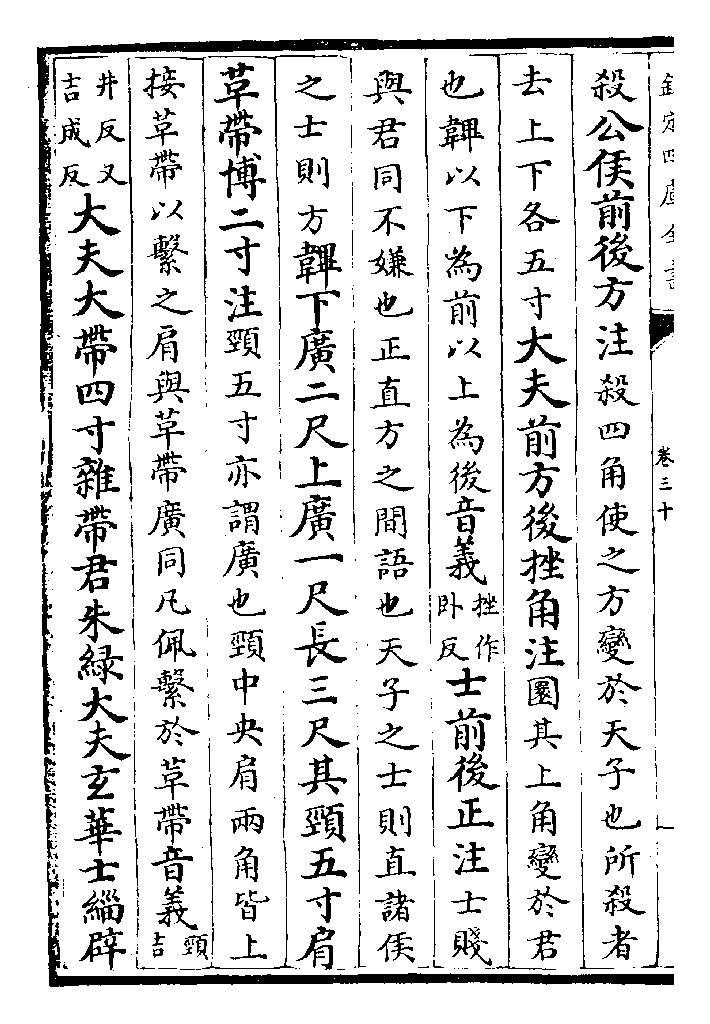 欽定四庫全書
卷三十
殺公侯前後方注殺四角使之方變於天子也所殺者
去上下各五寸大夫前方後挫角注圜其上角變於君
也韠以下為前以上為後音義挫作卧反士前後正注士賤
與君同不嫌也正直方之間語也天子之士則直諸侯
之士則方韠下廣二尺上廣一尺長三尺其頸五寸肩
革帶博二寸注頸五寸亦謂廣也頸中央肩兩角皆上
接革帶以繫之肩與革帶廣同凡佩繫於革帶音義頸吉
井反又吉成反大夫大帶四寸雜帶君朱緑大夫玄華士緇辟